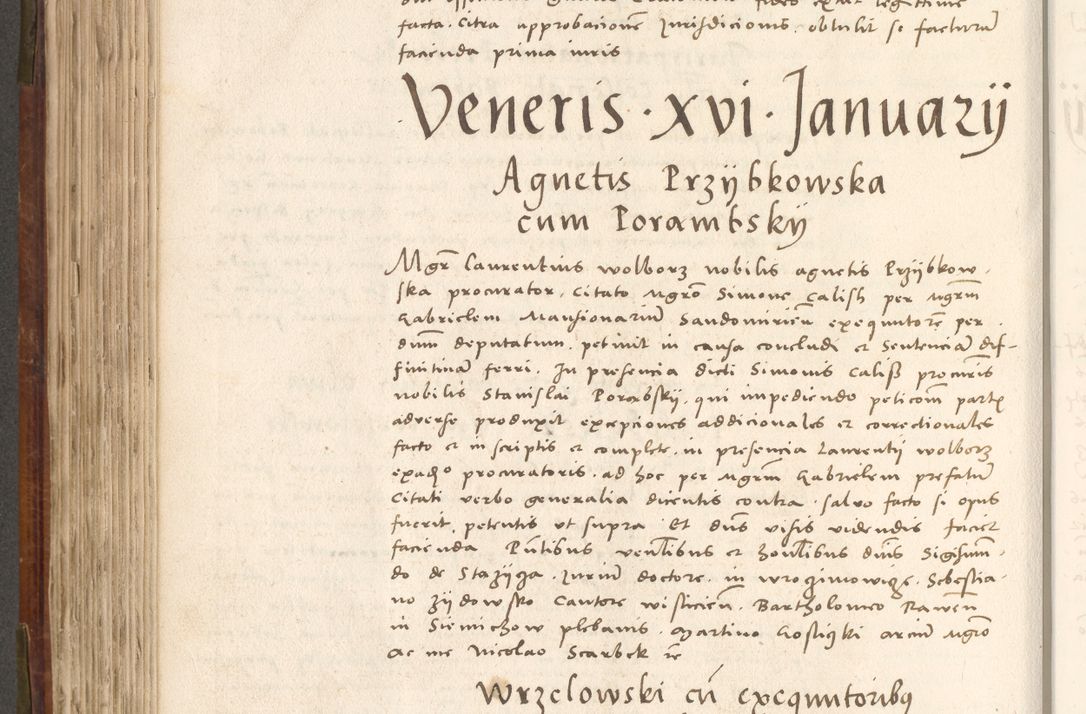 facta. Citra approbacione Jurisdicionis. obtulit se facturu
facienda prima iuris
Veneris · xvi · Januarij
Agnetis Przijbkowska
cum Porambskij
Mgr Laurentius wolborz nobilis agnetis Przijbkow-
ska procurator. Citato Mgro Simone Calish per Mgrm
Gabrielem Mansionariu Sandomirien exequutore per
dnm deputatum. petiuit in causa concludi et Sententia dif-
finitiua ferri. In presencia dicti Simonis Caliss procuris
nobilis Stanislai Porabskij. qui impediendo peticom partis
aduerse produxit excepciones addicionales et correctionales
facto et in scriptis et complete. in presencia Laurentij wolborz
exadso procuratoris. ad hoc per Mgrm Gabrielem prefatu
Citati verbo generalia dicentis contra. saluo facto si opus
fuerit. petentis vt supra Et dns visis videndis faciet
facienda Pntibus venlibus et honlibus dnis Sigismun-
do de Stazijcza. Juriu doctore. in wrocimowicze. Sebestia-
no zijdowsko Cantore wislicien. Bartholomeo Rawen
in Siemichow plebanis. Martino Gosticzki arciu Mgro
ac me Nicolao Scarbek re
Wrzelowski cu exequutoribus